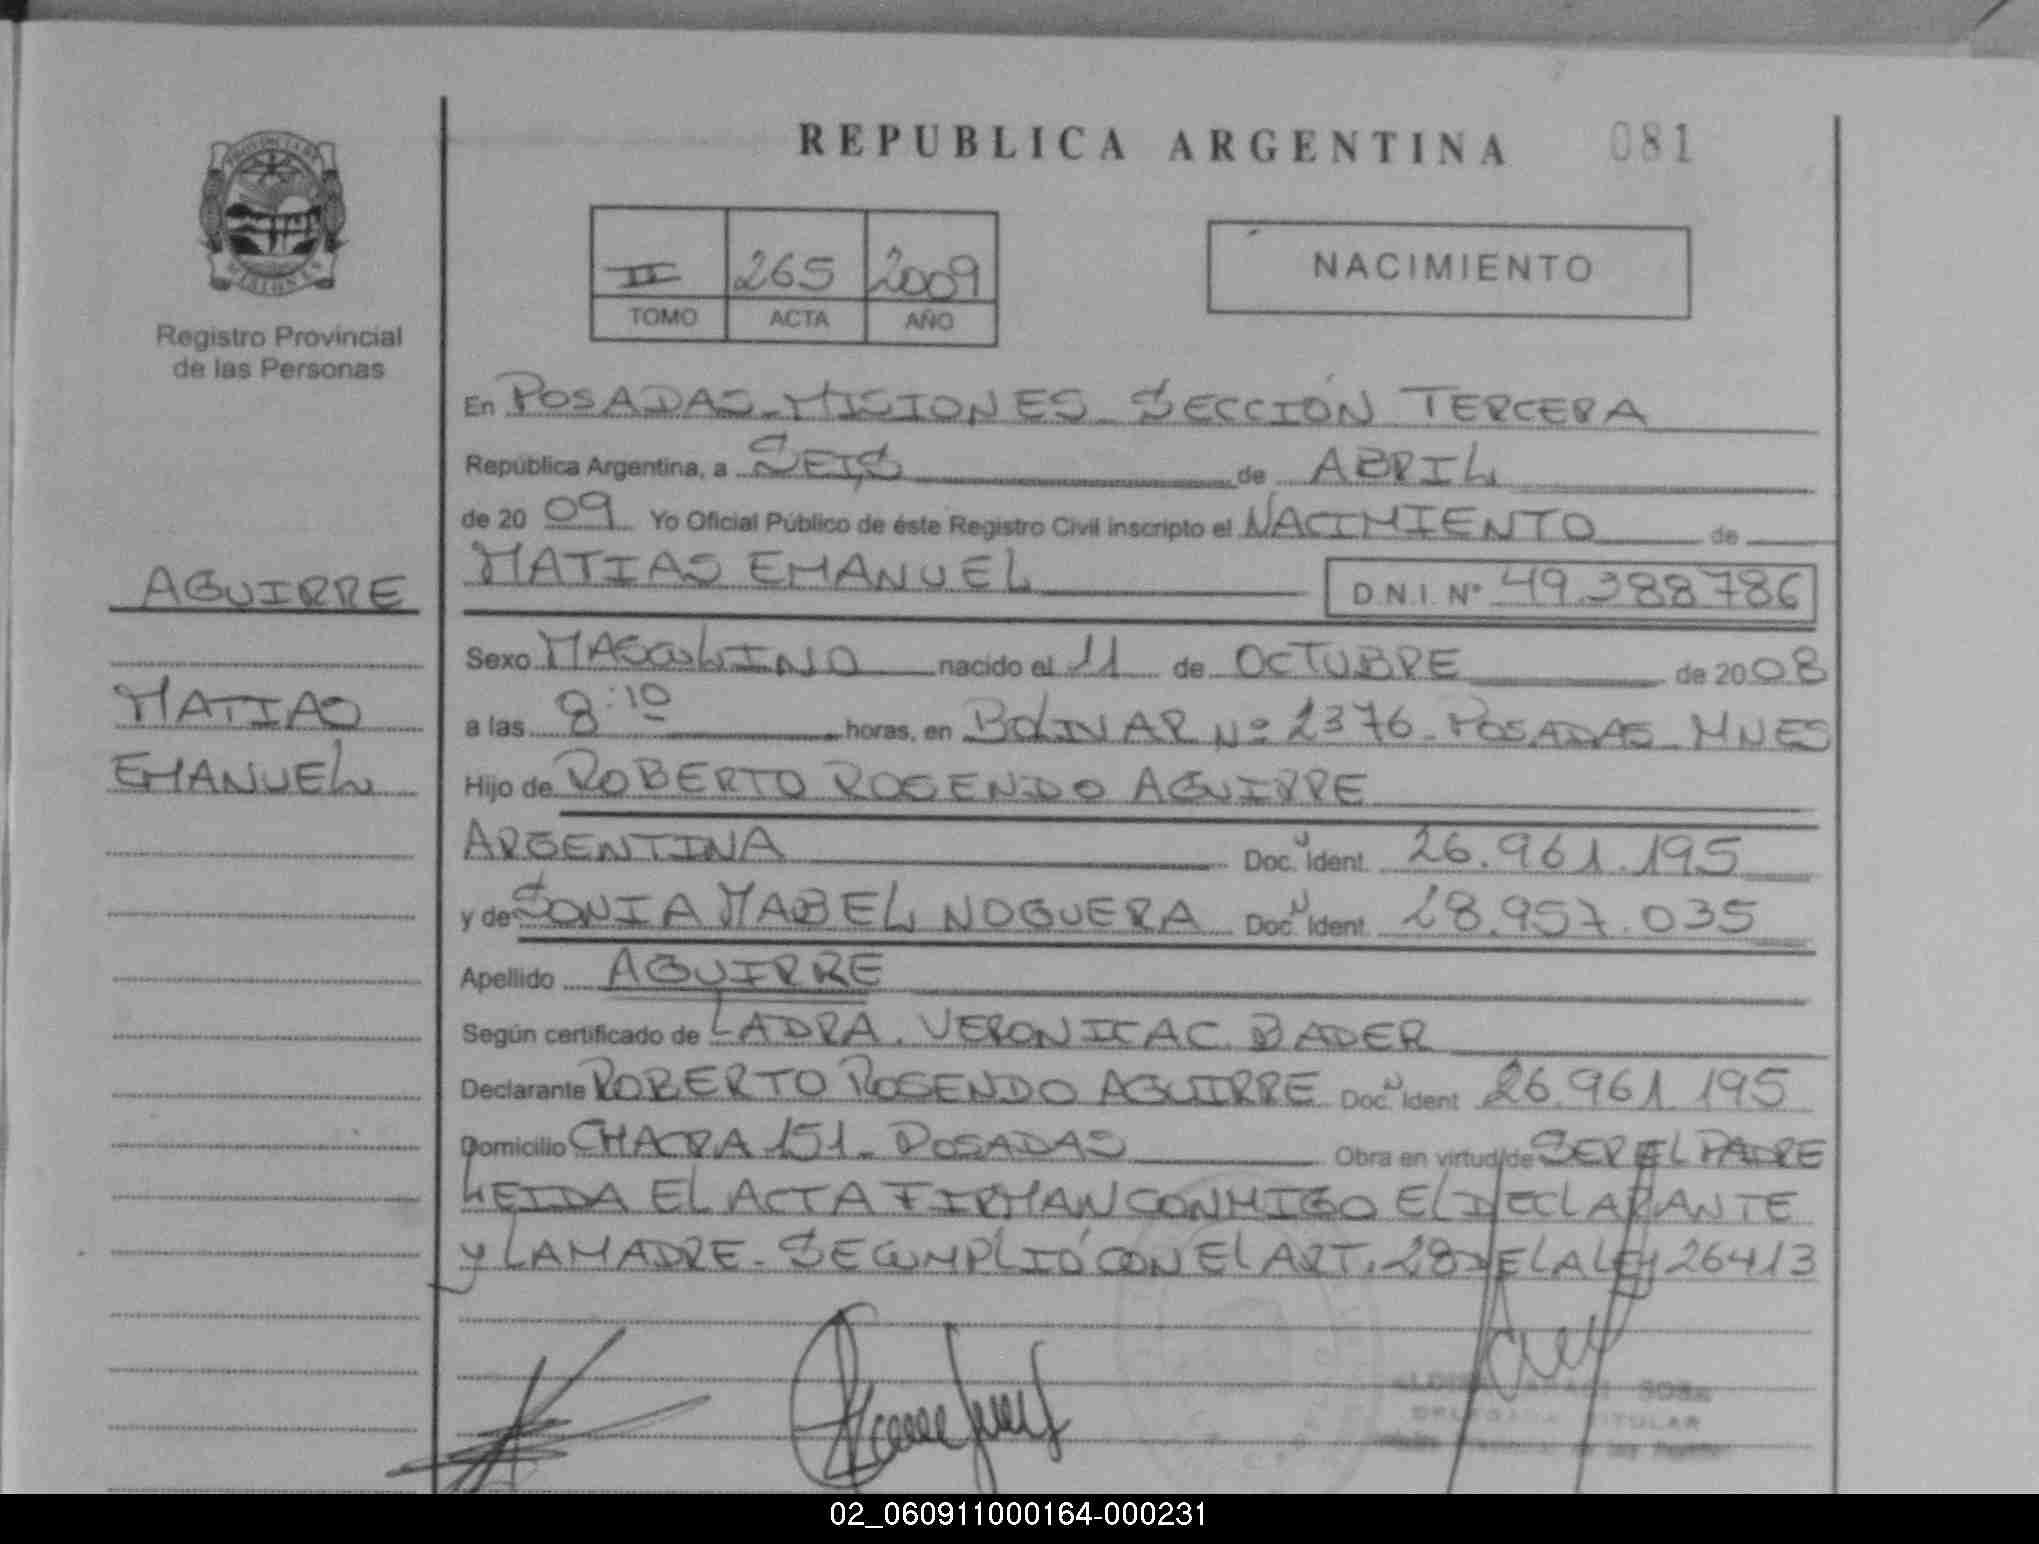 REPUBLICA ARGENTINA 081
PROVINCIA DE
MISIONES
Registro Provincial
de las Personas
II 265 2009
TOMO ACTA AÑO
NACIMIENTO
En POSADAS-MISIONES-SECCIÓN TERCERA
República Argentina, a SEIS de ABRIL
de 20 09 Yo Oficial Público de éste Registro Civil inscripto el NACIMIENTO de
MATIAS EMANUEL D.N.I. Nº 49.388786
AGUIRRE
MATIAS
EMANUEL
Sexo MASCULINO nacido el 11 de OCTUBRE de 2008
a las 8:10 horas, en BOLIVAR Nº 2376-POSADAS-MNES
Hijo de ROBERTO ROSENDO AGUIRRE
ARGENTINA Doc. Ident. 26.961.195
y de SONIA MABEL NOGUERA Doc. Ident. 28.957.035
Apellido AGUIRRE
Según certificado de LADRA. VERONICA C. BADER
Declarante ROBERTO ROSENDO AGUIRRE Doc. Ident 26.961.195
Domicilio CHACRA 151- POSADAS Obra en virtud de SER EL PADRE
LEIDA EL ACTA FIRMAN CONMIGO EL DECLARANTE
Y LA MADRE- SE CUMPLIÓ CON EL ART. 28 DE LA LEY 26413
SOSA
DELEGADA TITULAR
02_060911000164-000231